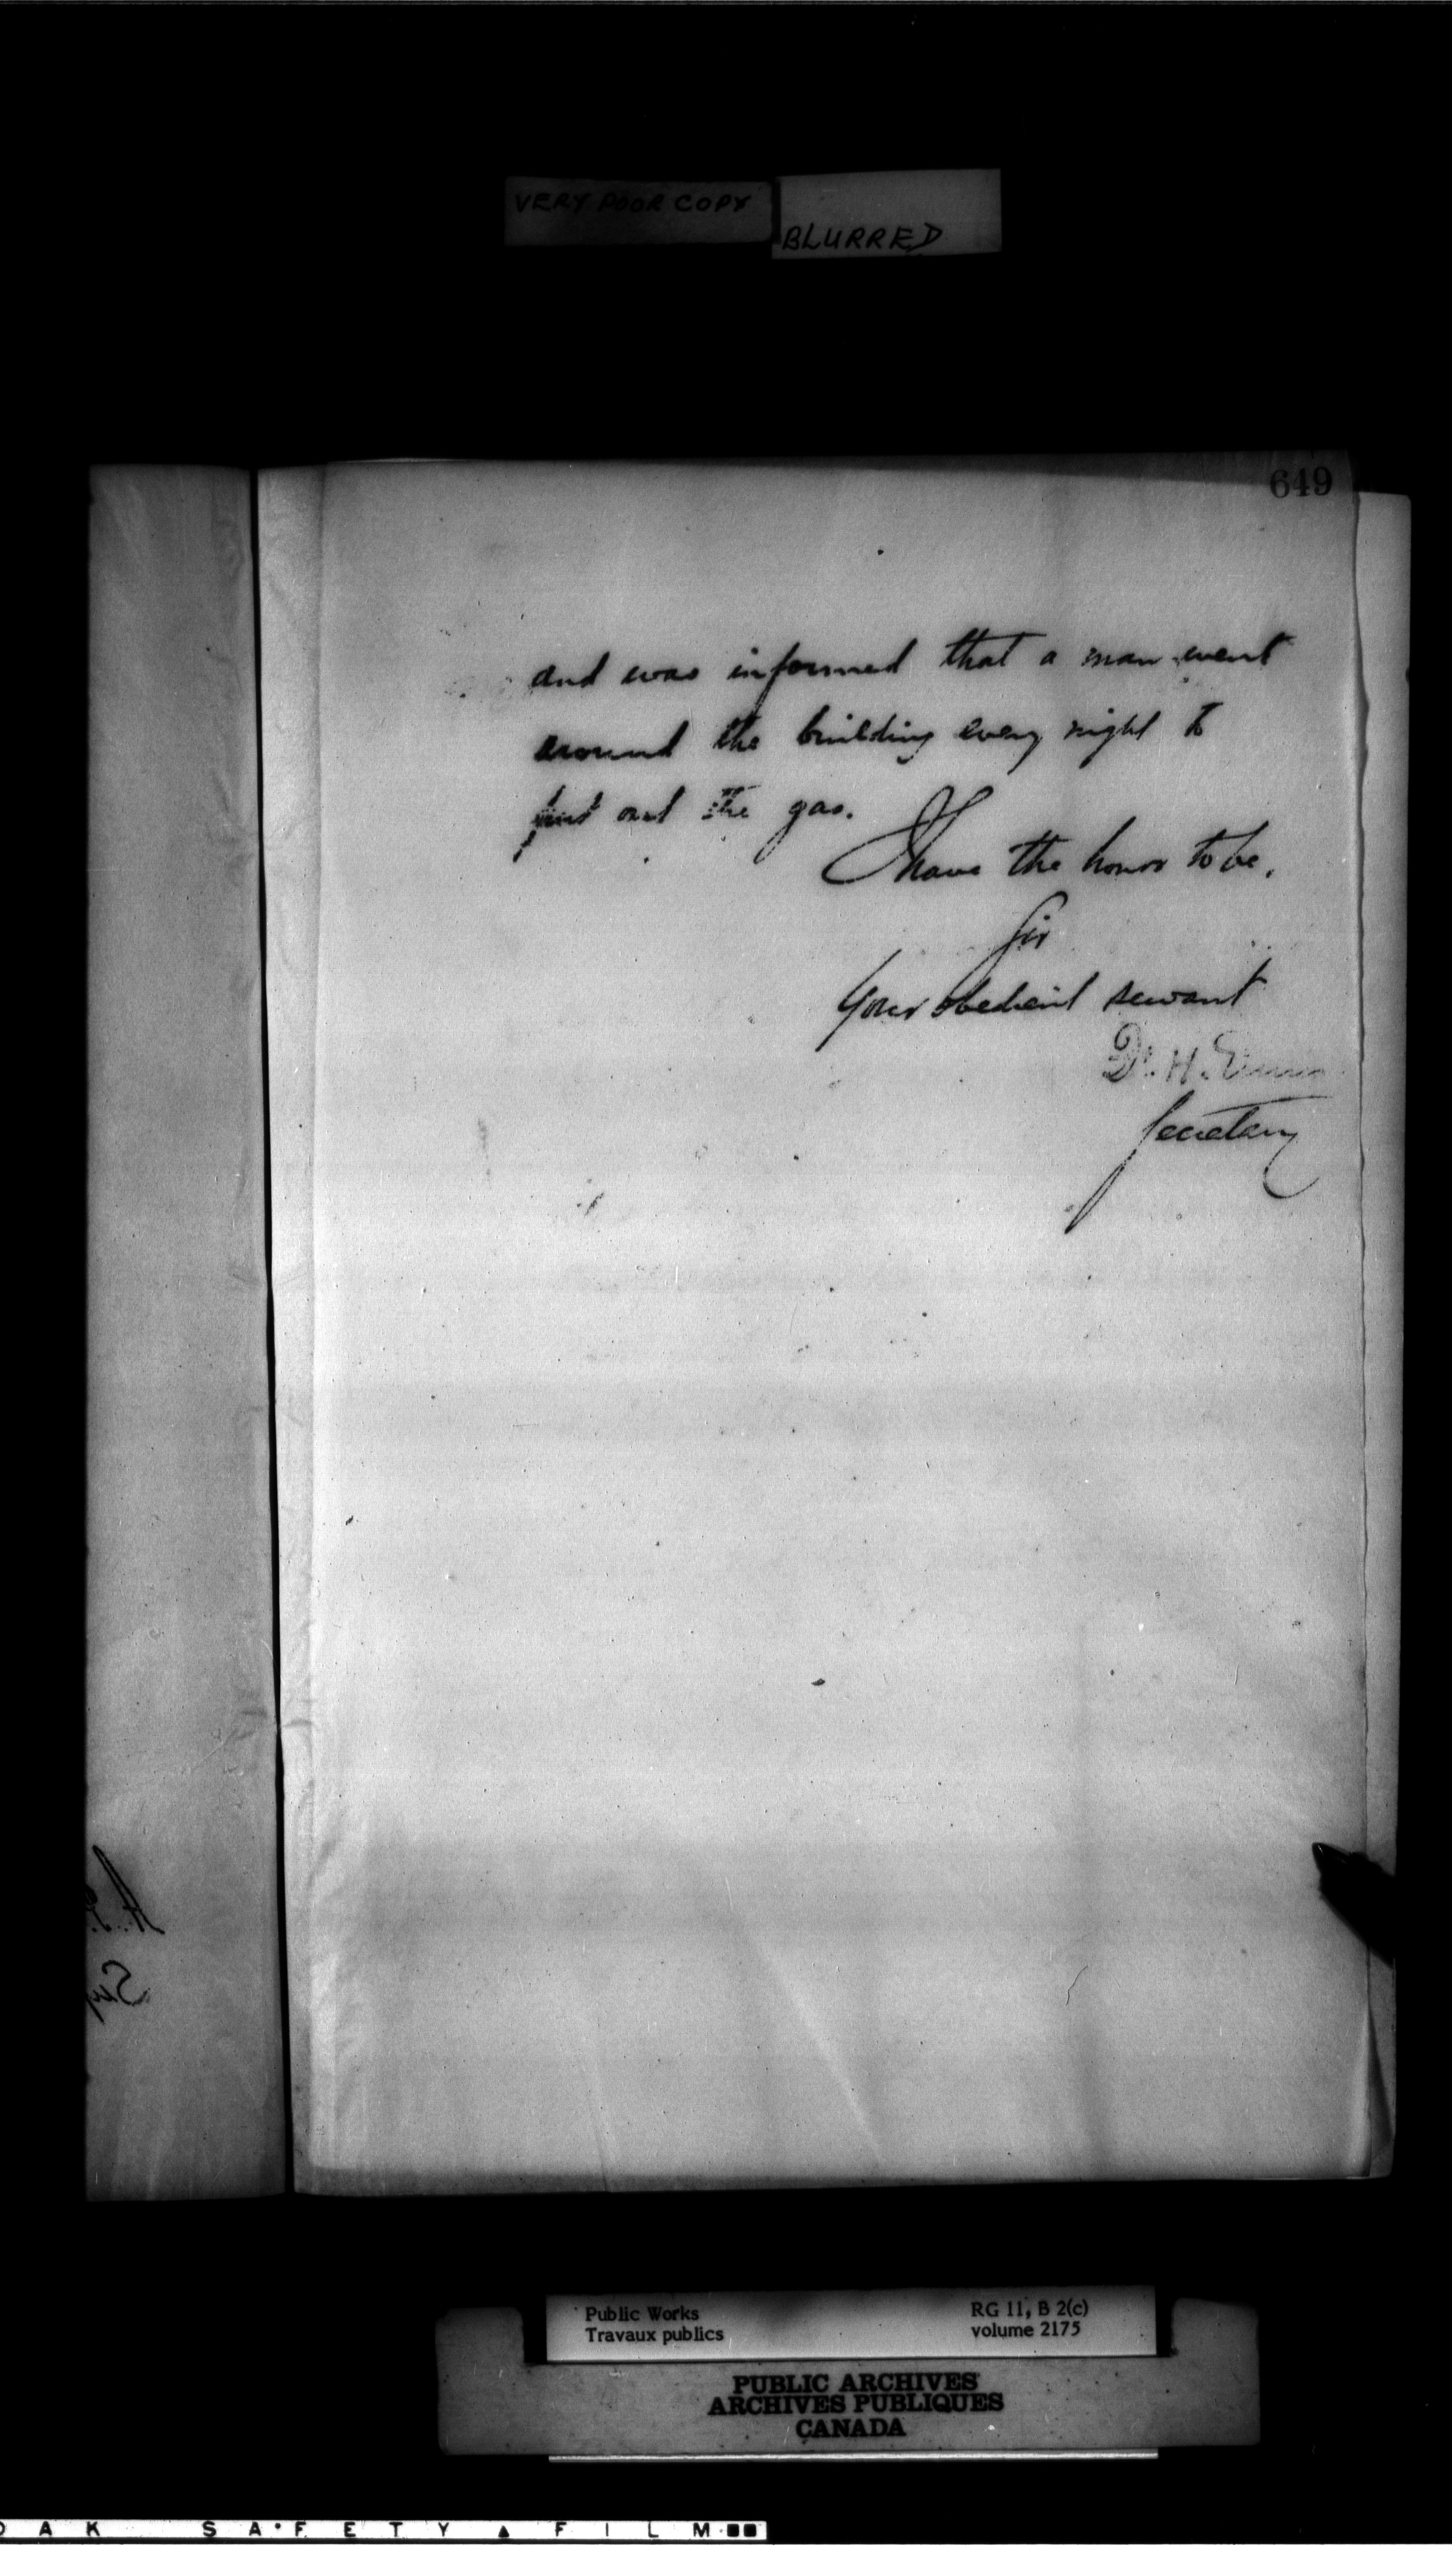 VERY POOR COPY
BLURRED
649
and was informed that a man went
around the building every night to
put out the gas.
I have the honor to be,
Sir
Your obedient servant
H.
Secretary
Public Works
Travaux publics
RG 11, B 2(c)
volume 2175
PUBLIC ARCHIVES
ARCHIVES PUBLIQUES
CANADA
DAK SAFETY FILM